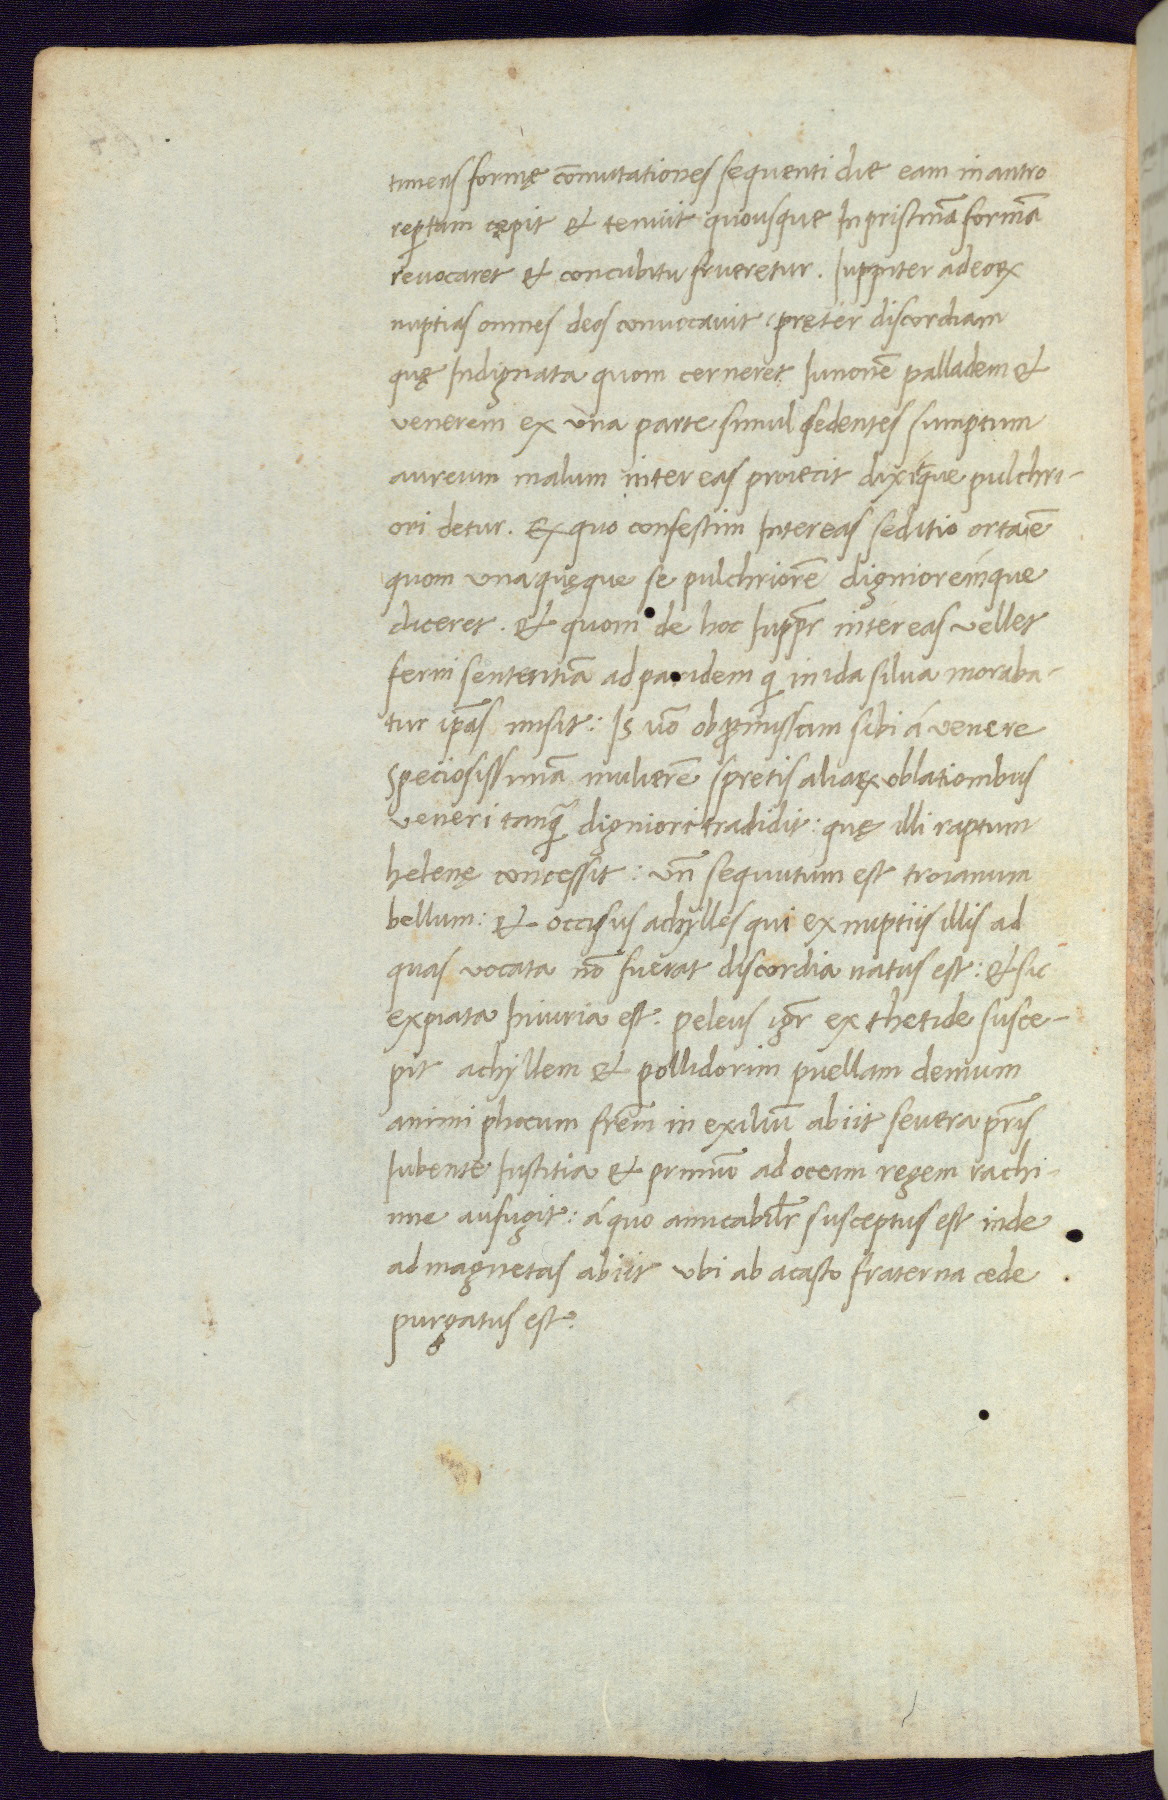 timens formę cōmutationes sequenti die eam in antro
reꝑtam cępit & tenuit quousque In pristinā formā
revocaret & concubitu frueretur. Iuppiter ad eoꝝ
nuptias omnes deos convocavit pręter discordiam
quę Indignata quom cerneret Iunonē palladem &
venerem ex una parte simul sedentes sumptum
aureum malum inter eas proiecit dixitque pulchri-
ori detur. Ex quo confestim Inter eas seditio orta ē
quom unaquęque se pulchriorē dignioremque
diceret. & quom de hoc Iuppr̄ inter eas vellet
ferri sententiā ad paridem qi in ida silva moraba-
tur ip̄as misit: Is vō ob ꝓmissam sibi á venere
speciosissimā mulierē spretis aliaꝝ oblationibus
veneri tanqȝ̄ digniori tradidit: quę illi raptum
helenę concessit: vn̄ sequutum est troianum
bellum: & occisus achylles qui ex nuptiis illis ad
quas vocata nō fuerat discordia natus est: & sic
expiata Iniuria est. peleus igr̄ ex thetide susce-
pit achyllem & pollidorim puellam demum
animi phocum frēm in exiliū abiit severa pr̄is
Iubente Iustitia & primū ad oceum regem rachi-
nne aufugit: á quo amicabilr̄ susceptus est inde
ad magnetas abiit ubi ab acasto fraterna cede
purgatus est: